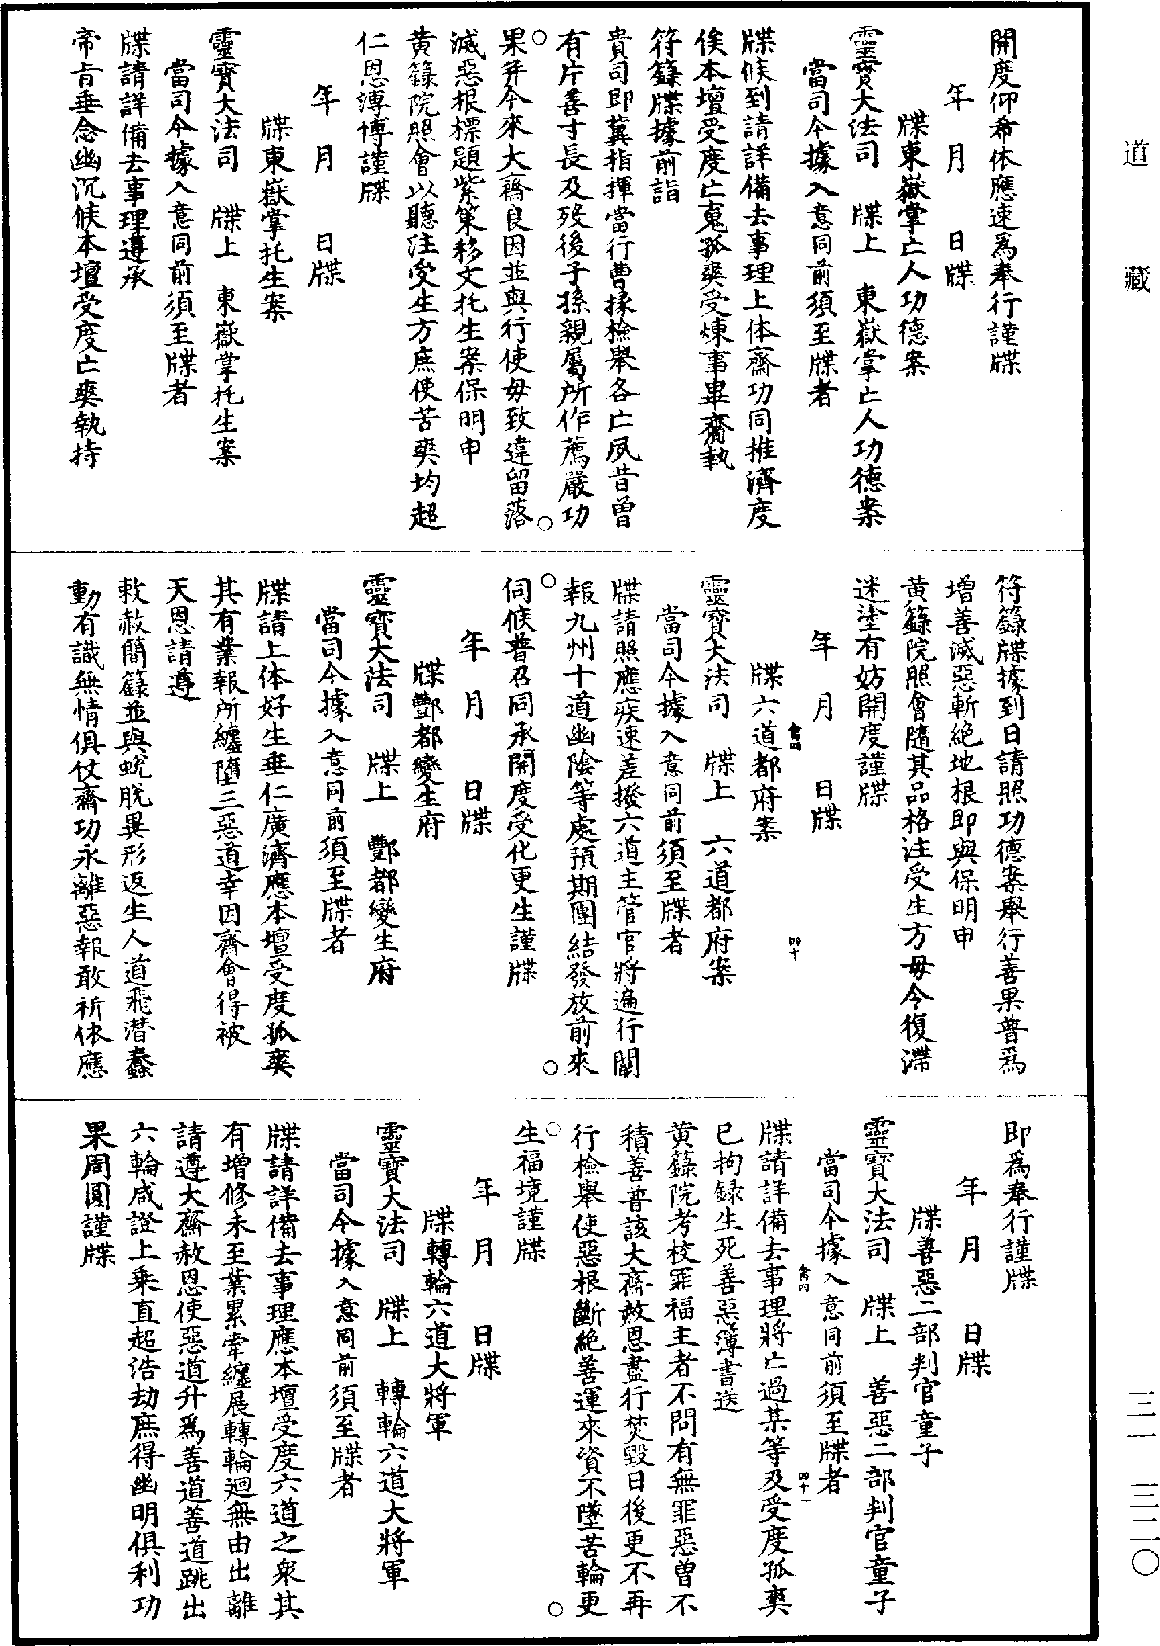 道藏
三一 三二〇
開度仰希体應速為奉行謹牒
年 月 日牒
牒東嶽掌亡人功德案
靈寶大法司 牒上 東嶽掌亡人功德案
當司今據入意同前須至牒者
牒候到請詳備去事理上体齋功同推濟度
俟本壇受度亡䰟孤爽受煉事畢齎執
符籙牒據前詣
貴司即冀指揮當行曹掾檢舉各亡夙昔曾
有片善寸長及歿後子孫親屬所作薦嚴功
果并今來大齋良因並與行使毋致違留落
滅惡根標題紫策移文托生案保明申
黃籙院照會以聽注受生方庶使苦爽均超
仁恩溥博謹牒
年 月 日牒
牒東嶽掌托生案
靈寶大法司 牒上 東嶽掌托生案
當司今據入意同前須至牒者
牒請詳備去事理遵承
帝旨垂念幽沉候本壇受度亡爽執持
符籙牒據到日請照功德案舉行善果普為
增善滅惡斬絕地根即與保明申
黃籙院照會隨其品格注受生方毋令復滯
迷塗有妨開度謹牒
年 月 日牒
牒六道都府案
靈寶大法司 牒上 六道都府案
當司今據入意同前須至牒者
牒請照應疾速差撥六道主管官將遍行關
報九州十道幽陰等處預期團結發放前來
伺候普召同承開度受化更生謹牒
年 月 日牒
牒酆都變生府
靈寶大法司 牒上 酆都變生府
當司今據入意同前須至牒者
牒請上体好生垂仁廣濟應本壇受度孤爽
其有業報所纏墮三惡道幸因齋會得被
天恩請遵
敕赦簡籙並與蛻脫異形返生人道飛潛蠢
動有識無情俱仗齋功永離惡報敢祈体應
即為奉行謹牒
年 月 日牒
牒善惡二部判官童子
靈寶大法司 牒上 善惡二部判官童子
當司今據入意同前須至牒者
牒請詳備去事理將亡過某等及受度孤爽
已拘録生死善惡簿書送
黃籙院考校罪福主者不問有無罪惡曾不
積善普該大齋赦恩盡行焚毀日後更不再
行檢舉使惡根斷絕善運來資不墜苦輪更
生福境謹牒
年 月 日牒
牒轉輪六道大將軍
靈寶大法司 牒上 轉輪六道大將軍
當司今據入意同前須至牒者
牒請詳備去事理應本壇受度六道之衆其
有增修未至業累牽纏展轉輪迴無由出離
請遵大齋赦恩使惡道升為善道善道跳出
六輪咸證上乘直超浩劫庶得幽明俱利功
果周圓謹牒